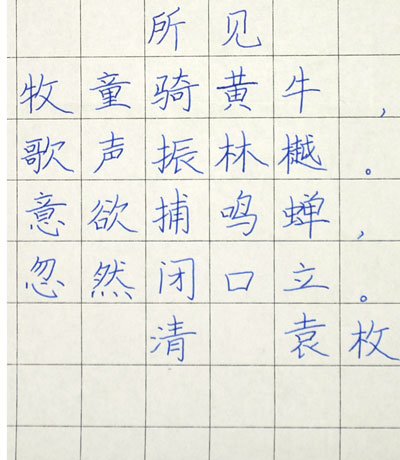 所见
牧童骑黄牛，
歌声振林樾。
意欲捕鸣蝉，
忽然闭口立。
清 袁枚